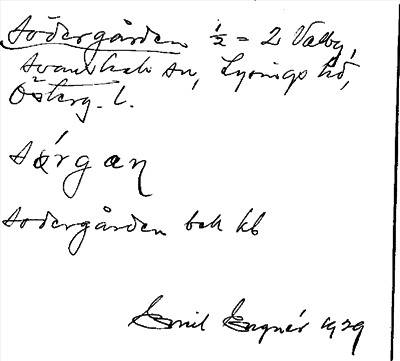 Södergården ½ = 2 Valby,
Svanshals sn, Lysings hd,
Österg. l.
sǿrgan
Södergården bek kb
Emil Engnér 1929